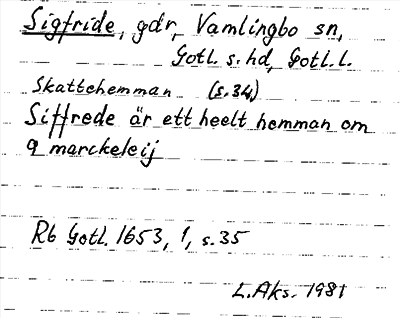 Sigfride, gdr, Vamlingbo sn,
Gotl. s. hd, Gotl. l.
Skattehemman (s. 34)
Siffrede är ett heelt hemman om
9 marckeleij
Rb Gotl. 1653, 1, s. 35
L. Aks. 1981